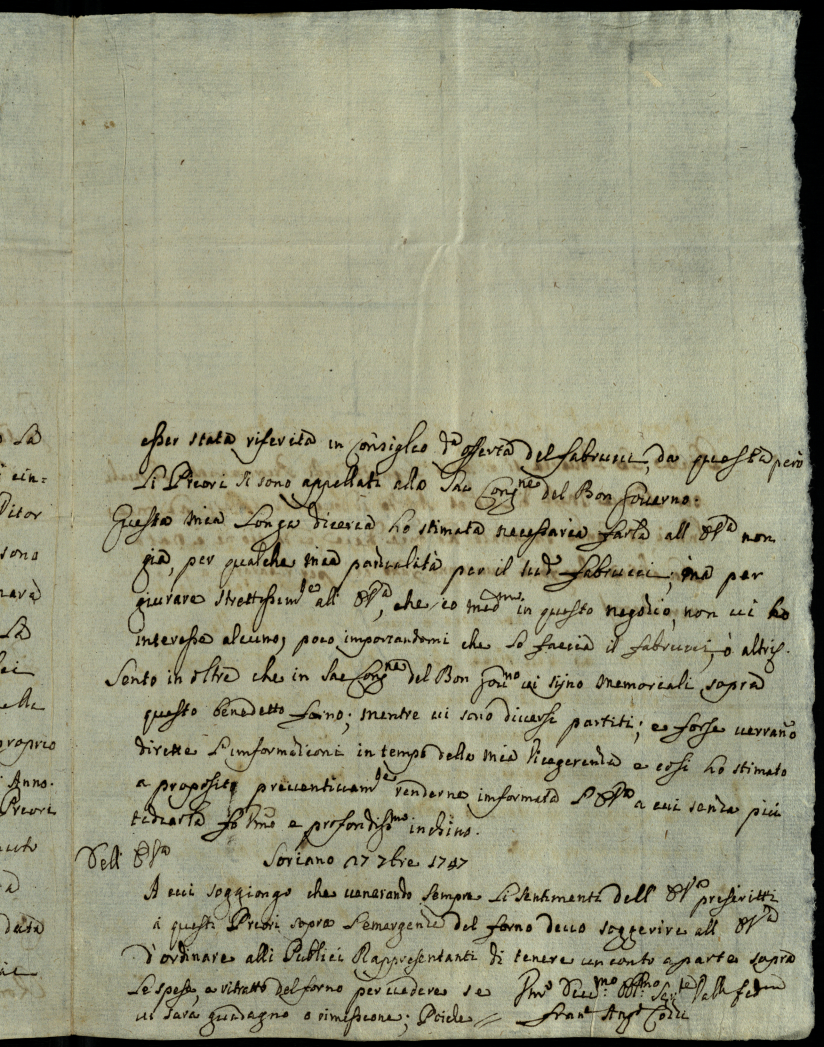 esser stata riferita in Consiglio d.a offerta del Fabrucci, da questa però
Li Priori si sono appellati alla Sac Cong.ne del Bon Governo.
Questa mia Longa diceria ho stimata necessaria farla all' V.a non
già, per qualche mia parzialità per il sud. Fabrucci; ma per
giurare strettissim.e all' V.a, che io med.mo in questo negozio, non ci ho
interesse alcuno; poco importandomi che lo faccia il Fabrucci, ò altri.
Sento in oltre che in Sac Cong.ne del Bon Gov.no vi sijno memoriali sopra
questo benedetto forno; mentre vi sono diversi partiti; e forse verrano
dirette l'informazioni in tempo della mia Vicegerenza e così ho stimato
a proposito preventivam.te renderne informata l' V.a a cui senza più
tediarla fò hum.o e profondiss.mo inchino.
Dell' V.a Soriano 17 7bre 1747
A cui soggiongo che venerando sempre li sentimenti dell' V.a presiritti
a questi Priori sopra l'emergenza del forno devo soggerire all' V.a
d'ordinare alli Publici Rappresentanti di tenere un conto a parte sopra
le spese, e ritratto del forno per vedere se
vi sarà guadagno o rimissione; Poiche //
o La
ein=
ditor
sono
La
ella
proprio
Anno.
Priori
data